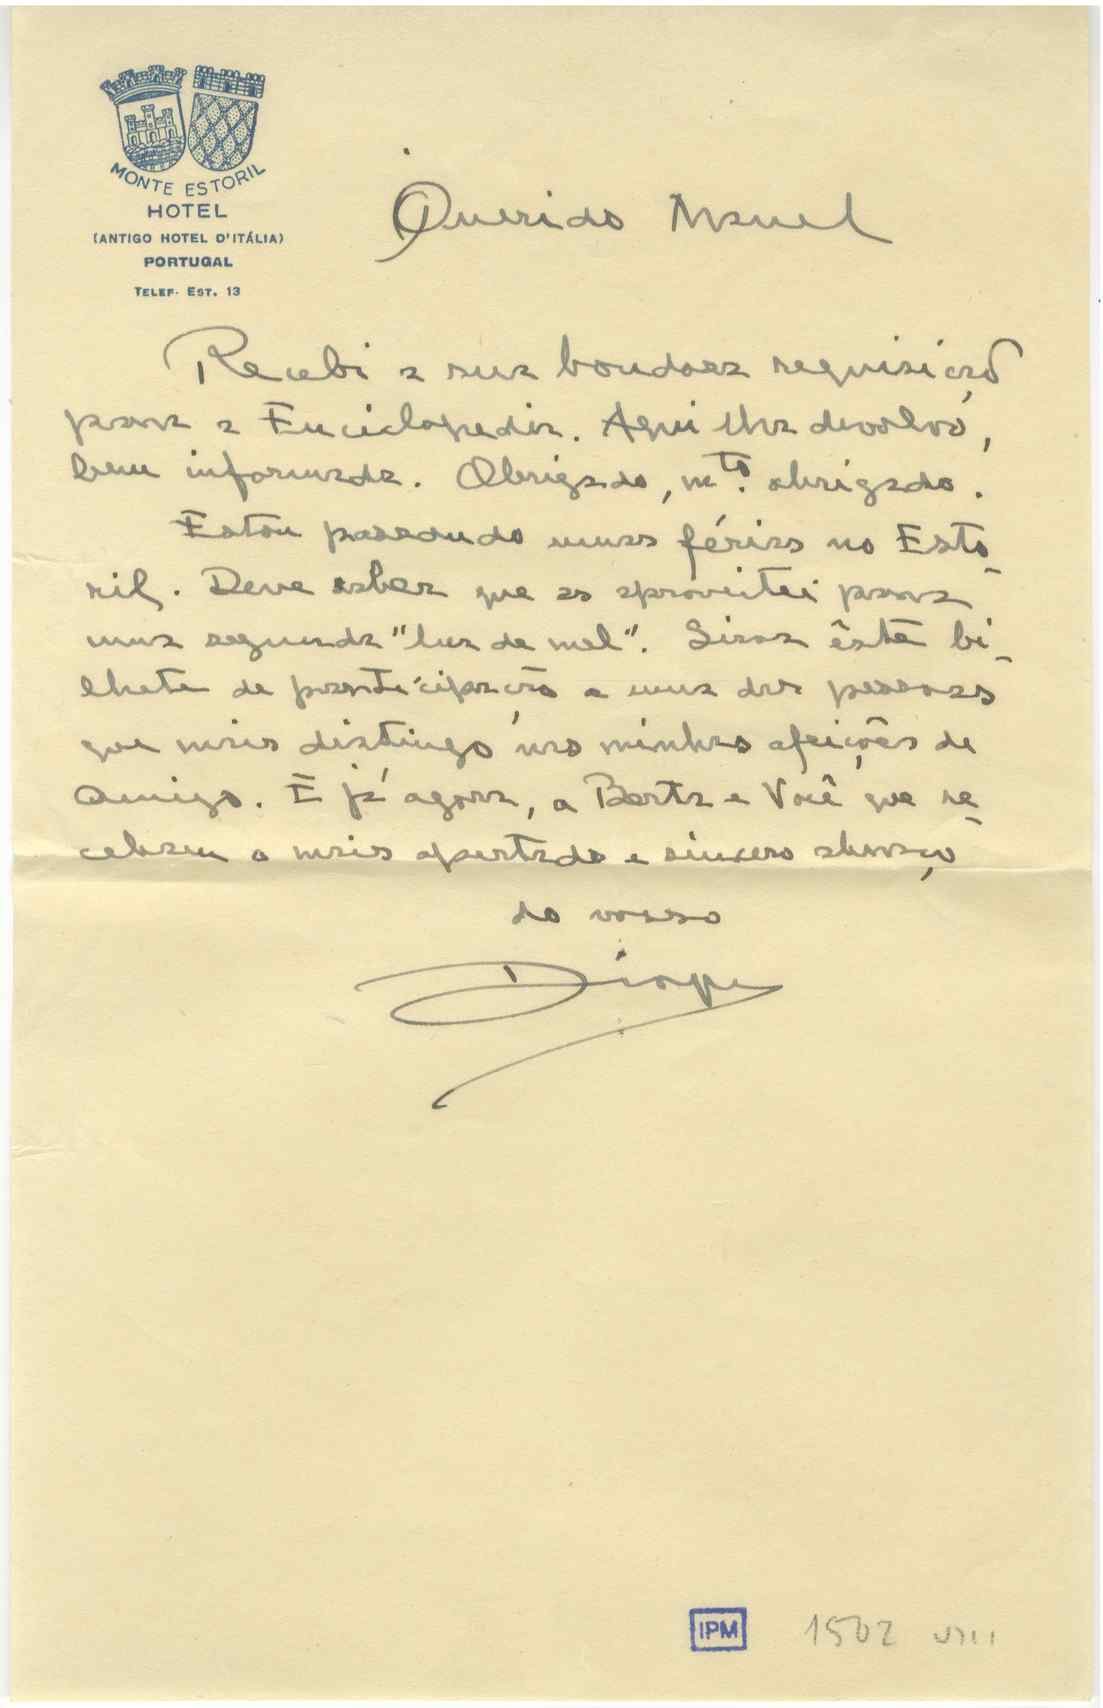 MONTE ESTORIL
HOTEL
(ANTIGO HOTEL D'ITÁLIA)
PORTUGAL
TELEF. EST. 13
Querido Manuel
Recebi a sua bondosa requisição
para a Enciclopedia. Aqui lha devolvo,
bem informada. Obrigado, mto. obrigado.
Estou passando umas férias no Esto-
ril. Deve saber que as aproveitei para
uma segunda "lua de mel". Sirva êste bi-
lhete de participação a uma das pessoas
que mais distingo nas minhas afeições de
amigo. E já agora, a Berta e Você que re-
cebam o mais apertado e sincero abraço
do vosso
Diogo
IPM
1502 VIII